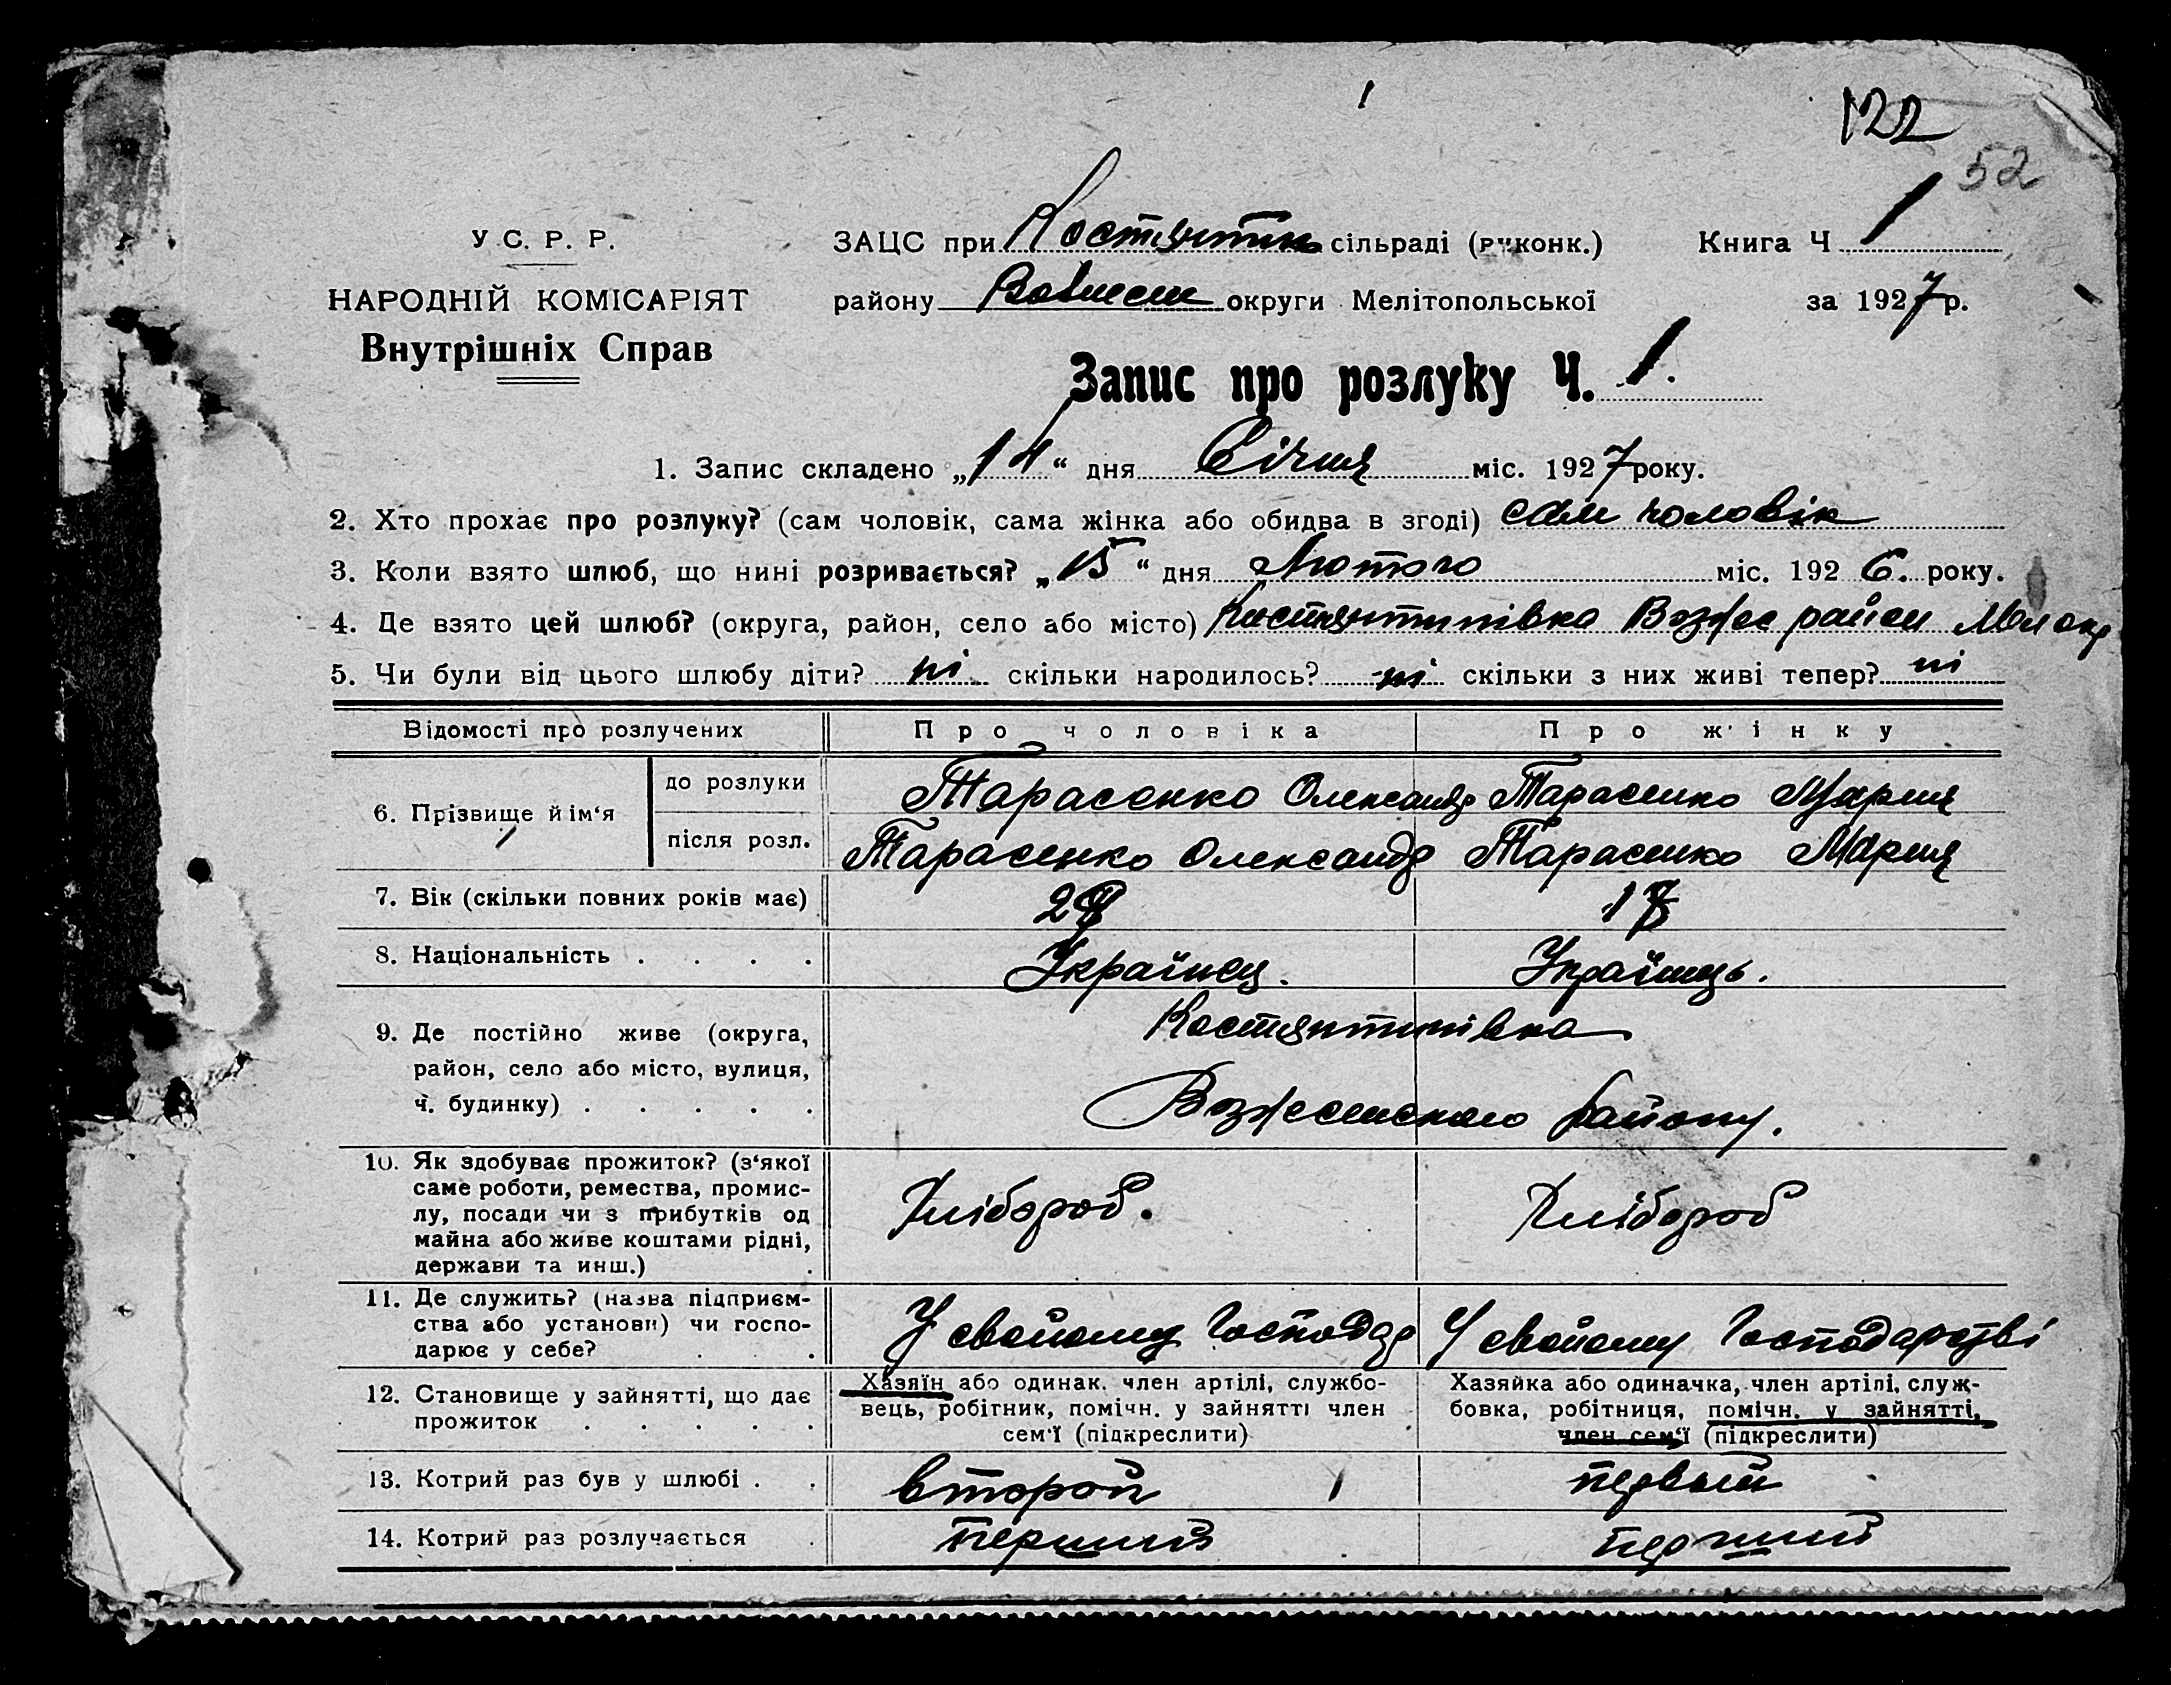 1
122
52
У.С. Р. Р.
НАРОДНІЙ КОМІСАРІЯТ
Внутрішніх Справ
ЗАЦС при Костянтин сільраді (виконк.)
Книга Ч 1
району округи Мелітопольської
за 1927 р.
Запис про розлуку Ч. 1.
1. Запис складено „14“ дня Січня міс. 1927 року.
2. Хто прохає про розлуку? (сам чоловік, сама жінка або обидва в згоді) сам чоловік
3. Коли взято шлюб, що нині розривається? „15“ дня Лютого міс. 1926. року.
4. Де взято цей шлюб? (округа, район, село або місто) Костянтинівка Вознес район Мел окр
5. Чи були від цього шлюбу діти? ні скільки народилось? ні скільки з них живі тепер? ні
Відомості про розлучених
Про чоловіка
Про жінку
6. Прізвище й ім‘я
до розлуки
Тарасенко Олександр
Тарасенко Мария
після розл.
Тарасенко Олександр
Тарасенко Мария
7. Вік (скільки повних років має)
17
8. Національність . . . .
Українец.
Українець.
9. Де постійно живе (округа,
район, село або місто, вулиця,
ч. будинку) . . . . .
Костянтинівка
Вознесенского району.
10. Як здобуває прожиток? (з‘якої
саме роботи, ремества, промис-
лу, посади чи з прибутків од
майна або живе коштами рідні,
держави та инш.) .
Хлібороб.
Хлібороб
11. Де служить? (назва підприєм-
ства або установи) чи госпо-
дарює у себе? . .
У свойому Господар
У свойому Господарстві
12. Становище у зайнятті, що дає
прожиток . . . . .
Хазяїн або одинак. член артілі, службо-
вець, робітник, помічн. у зайнятті член
сем‘ї (підкреслити)
Хазяйка або одиначка, член артілі, служ-
бовка, робітниця, помічн. у зайнятті,
член сем‘ї (підкреслити)
13. Котрий раз був у шлюбі . .
второй
первый
14. Котрий раз розлучається .
перший
перший